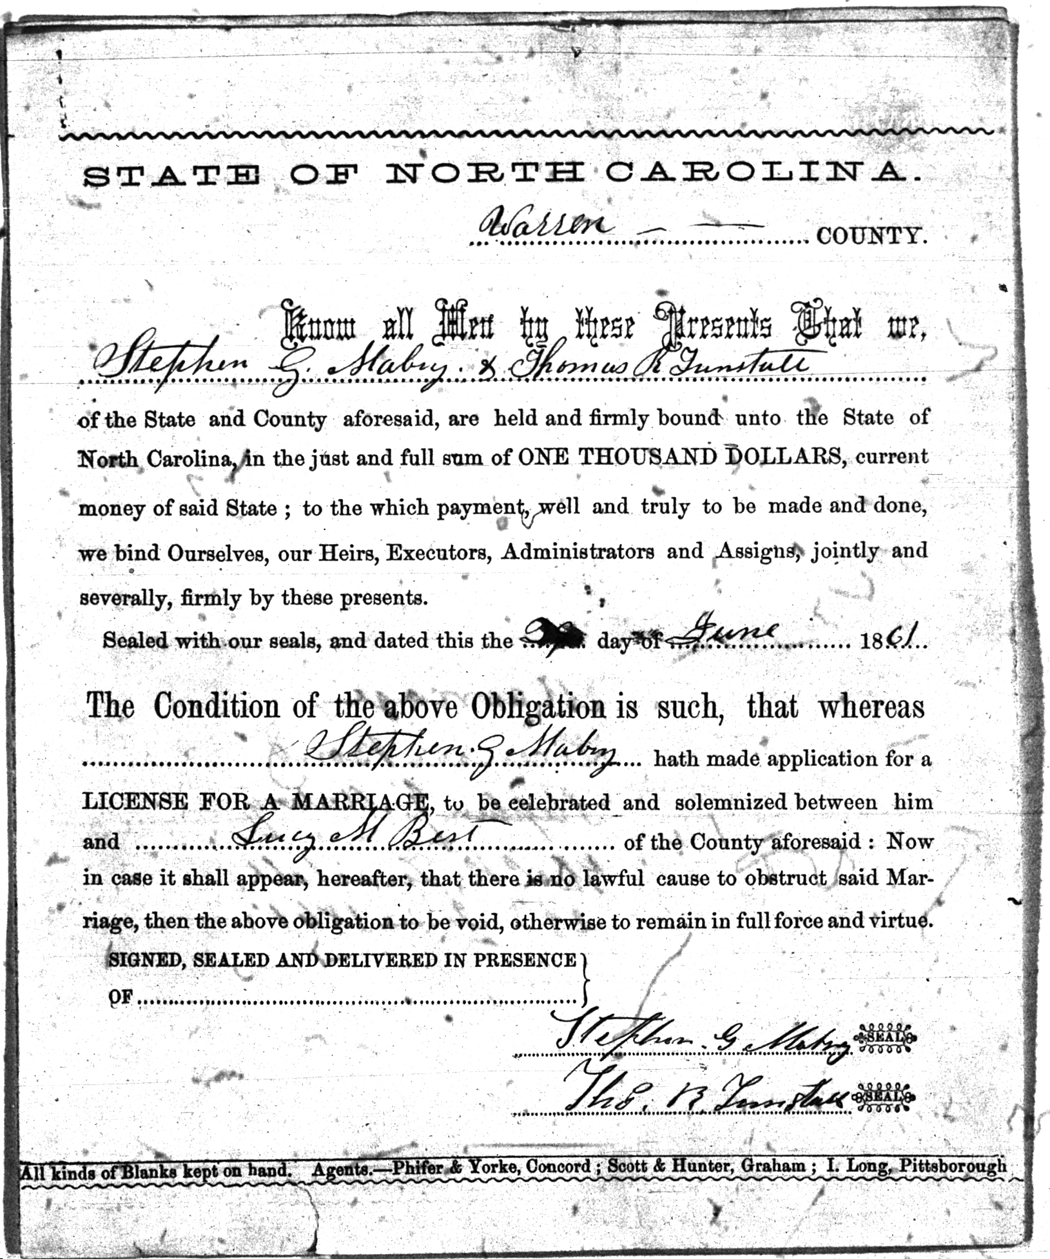 STATE OF NORTH CAROLINA.
Warren COUNTY.
Know all Men by these Presents That we,
Stephen G. Mabry & Thomas R Tunstall
of the State and County aforesaid, are held and firmly bound unto the State of
North Carolina, in the just and full sum of ONE THOUSAND DOLLARS, current
money of said State ; to the which payment, well and truly to be made and done,
we bind Ourselves, our Heirs, Executors, Administrators and Assigns, jointly and
severally, firmly by these presents.
Sealed with our seals, and dated this the day of June 1861
The Condition of the above Obligation is such, that whereas
Stephen G Mabry hath made application for a
LICENSE FOR A MARRIAGE, to be celebrated and solemnized between him
and Lucy M Best of the County aforesaid : Now
in case it shall appear, hereafter, that there is no lawful cause to obstruct said Mar-
riage, then the above obligation to be void, otherwise to remain in full force and virtue.
SIGNED, SEALED AND DELIVERED IN PRESENCE
OF
Stephen. G Mabry SEAL
Tho. R. Tunstall SEAL
All kinds of Blanks kept on hand. Agents.—Phifer & Yorke, Concord ; Scott & Hunter, Graham ; I. Long, Pittsborough